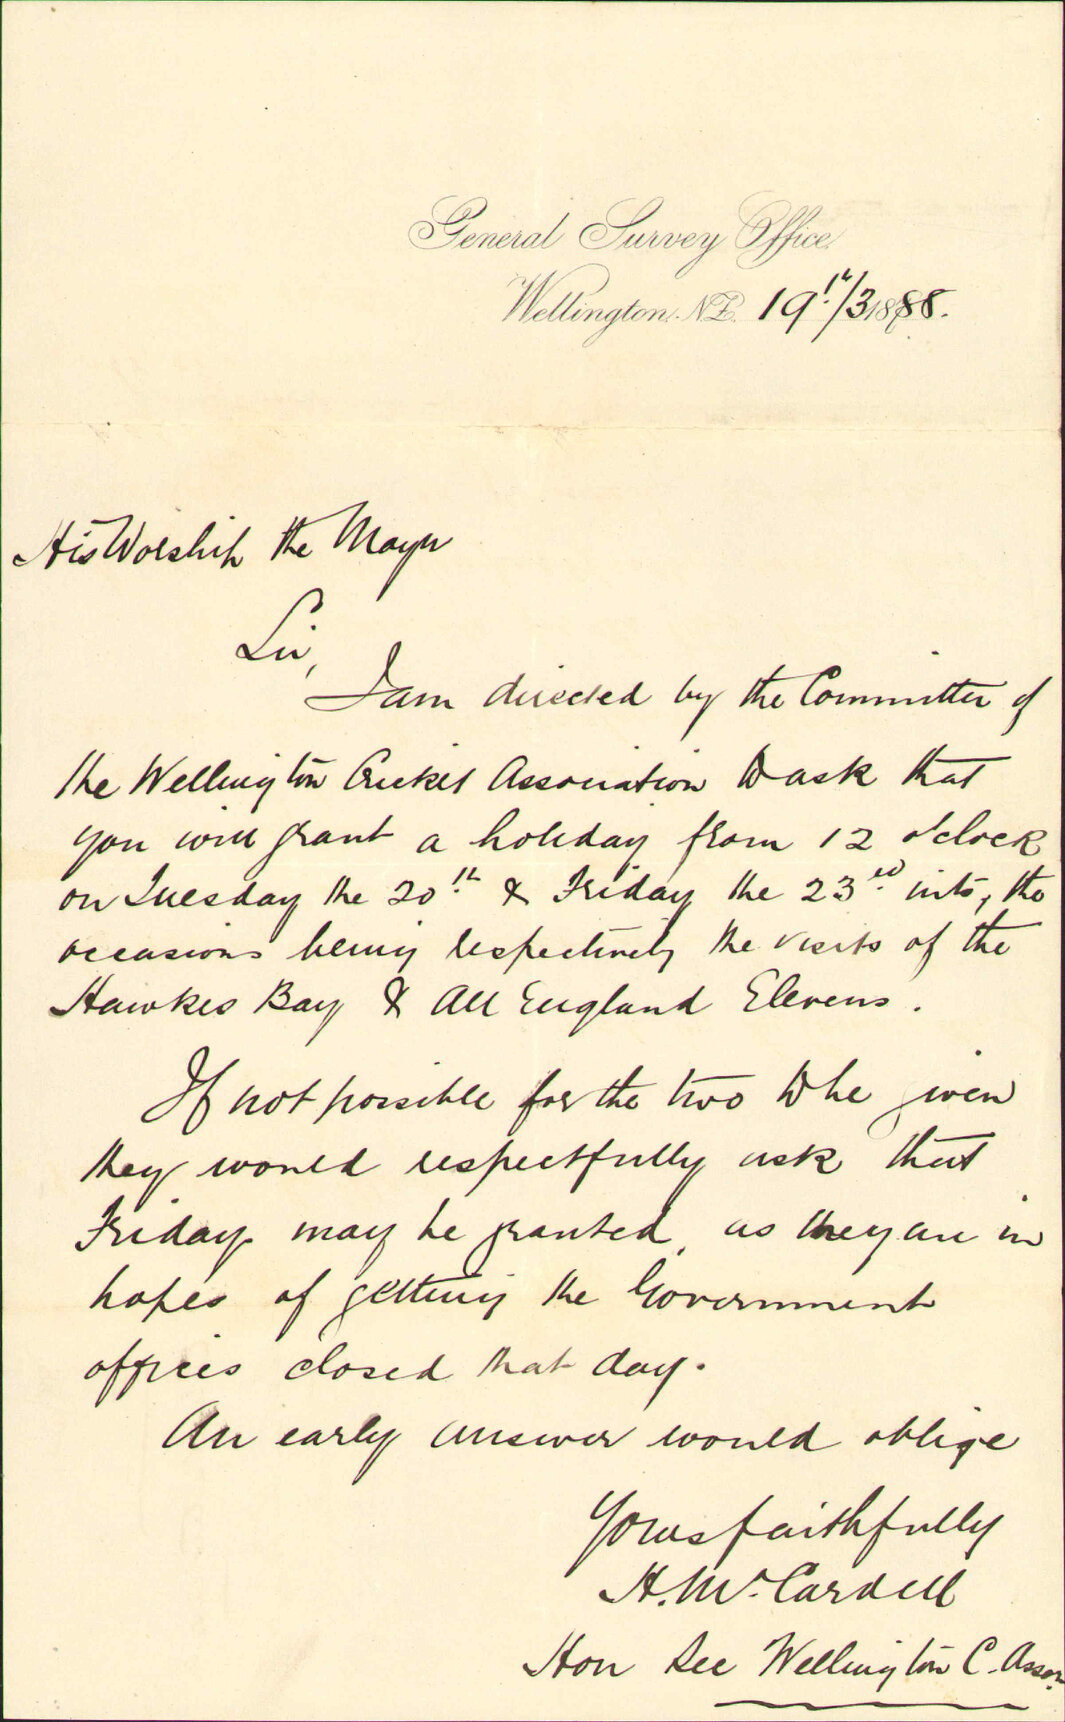 General Survey Office
Wellington N.Z. 19th/3 1888.
His Worship the Mayor
Sir,
I am directed by the Committee of
the Wellington Cricket Association to ask that
you will grant a holiday from 12 o'clock
on Tuesday the 20th & Friday the 23rd inst, the
occasions being respectively the visits of the
Hawkes Bay & All England Elevens.
If not possible for the two to be given
they would respectfully ask that
Friday may be granted, as they are in
hopes of getting the Government
offices closed that day.
An early answer would oblige
Yours faithfully
H. McCardell
Hon Sec Wellington C. Assn.